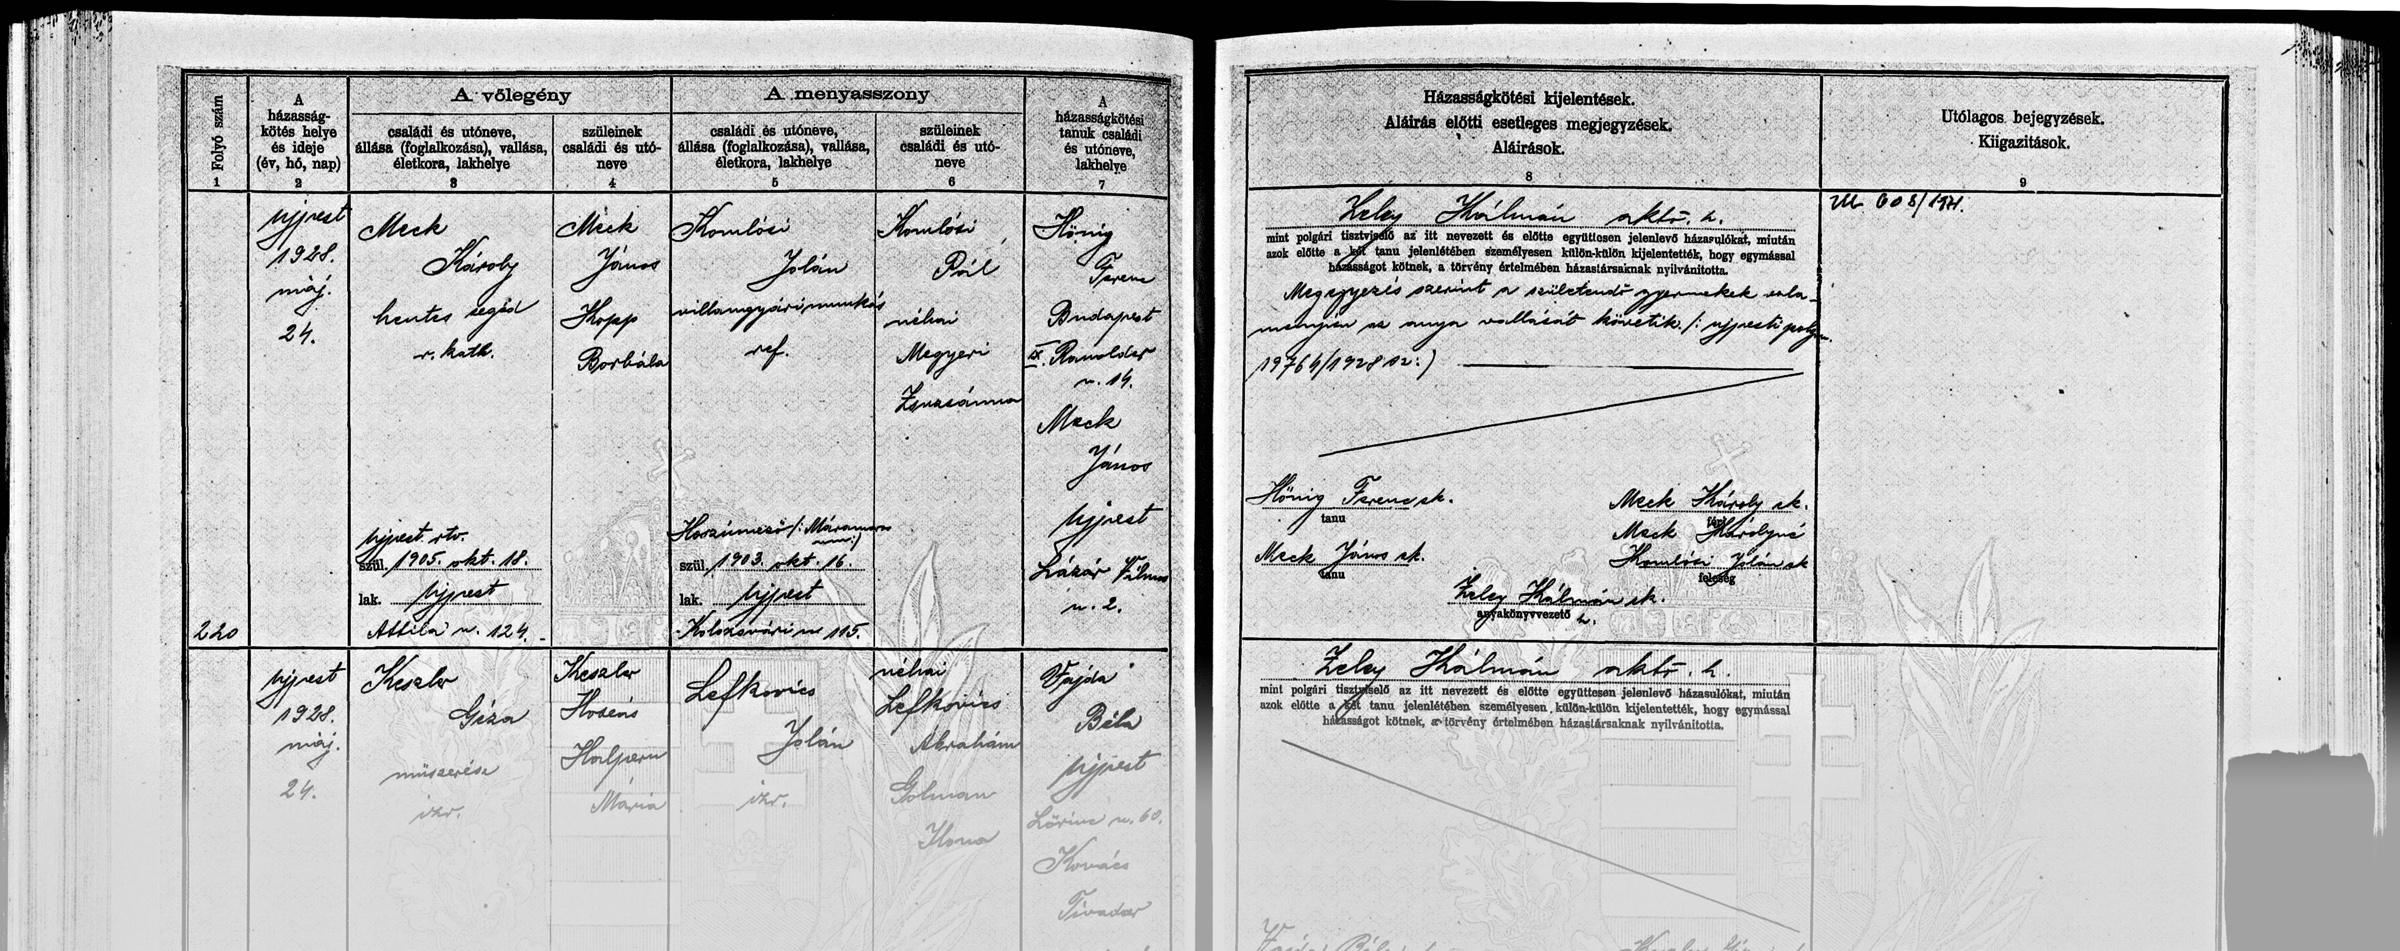 Folyó szám
1
A
házasság-
kötés helye
és ideje
(év, hó, nap)
2
A vőlegény
családi és utóneve,
állása (foglalkozása), vallása,
életkora, lakhelye
3
szüleinek
családi és utó-
neve
4
A menyasszony
családi és utóneve,
állása (foglalkozása), vallása,
életkora, lakhelye
5
szüleinek
családi és utó-
neve
6
A
házasságkötési
tanuk családi
és utóneve,
lakhelye
7
Házasságkötési kijelentések.
Aláirás előtti esetleges megjegyzések.
Aláirások.
8
Utólagos bejegyzések.
Kiigazitások.
9
220
Ujpest
1928.
máj.
24.
Meck
Károly
hentes segéd
r. kath.
Ujpest rtv.
szül. 1905. okt. 18.
lak. Ujpest
Attila u. 124.
Meck
János
Kopp
Borbála
Komlósi
Jolán
villamgyári munkás
ref.
Hoszúmező /: Máramaros
szül. 1903. okt. 16.
lak. Ujpest
Kolozsvári u 115.
Komlósi
Pál
néhai
Megyeri
Zsuzsánna
Hönig
Ferenc
Budapest
IX. Ranolder
u. 14.
Meck
János
Ujpest
Lázár Vilmos
u. 2.
Zeley Kálmán aktv. h.
mint polgári tisztviselő az itt nevezett és előtte együttesen jelenlevő házasulókat, miután
azok előtte a két tanu jelenlétében személyesen külön-külön kijelentették, hogy egymással
házasságot kötnek, a törvény értelmében házastársaknak nyilvánitotta.
Megegyezés szerint a születendő gyermekek vala-
mennyien az anya vallását követik. /: ujpesti polgm.
19764/1928 sz :)
Hönig Ferenc sk.
tanu
Meck János sk.
tanu
Meck Károly sk.
férj
Meck Károlyné
Komlósi Jolán sk
feleség
Zeley Kálmán sk.
anyakönyvvezető h.
608/1971.
Ujpest
1928.
máj.
24.
Keszler
Géza
műszerész
izr.
Keszler
Hoseás
Halpern
Mária
Lefkovics
Jolán
izr.
néhai
Lefkovics
Abrahám
Golman
Ilona
Vajda
Béla
Ujpest
Lőrinc u. 60.
Kovács
Tivadar
Zeley Kálmán aktv. h.
mint polgári tisztviselő az itt nevezett és előtte együttesen jelenlevő házasulókat, miután
azok előtte a két tanu jelenlétében személyesen külön-külön kijelentették, hogy egymással
házasságot kötnek, a törvény értelmében házastársaknak nyilvánitotta.